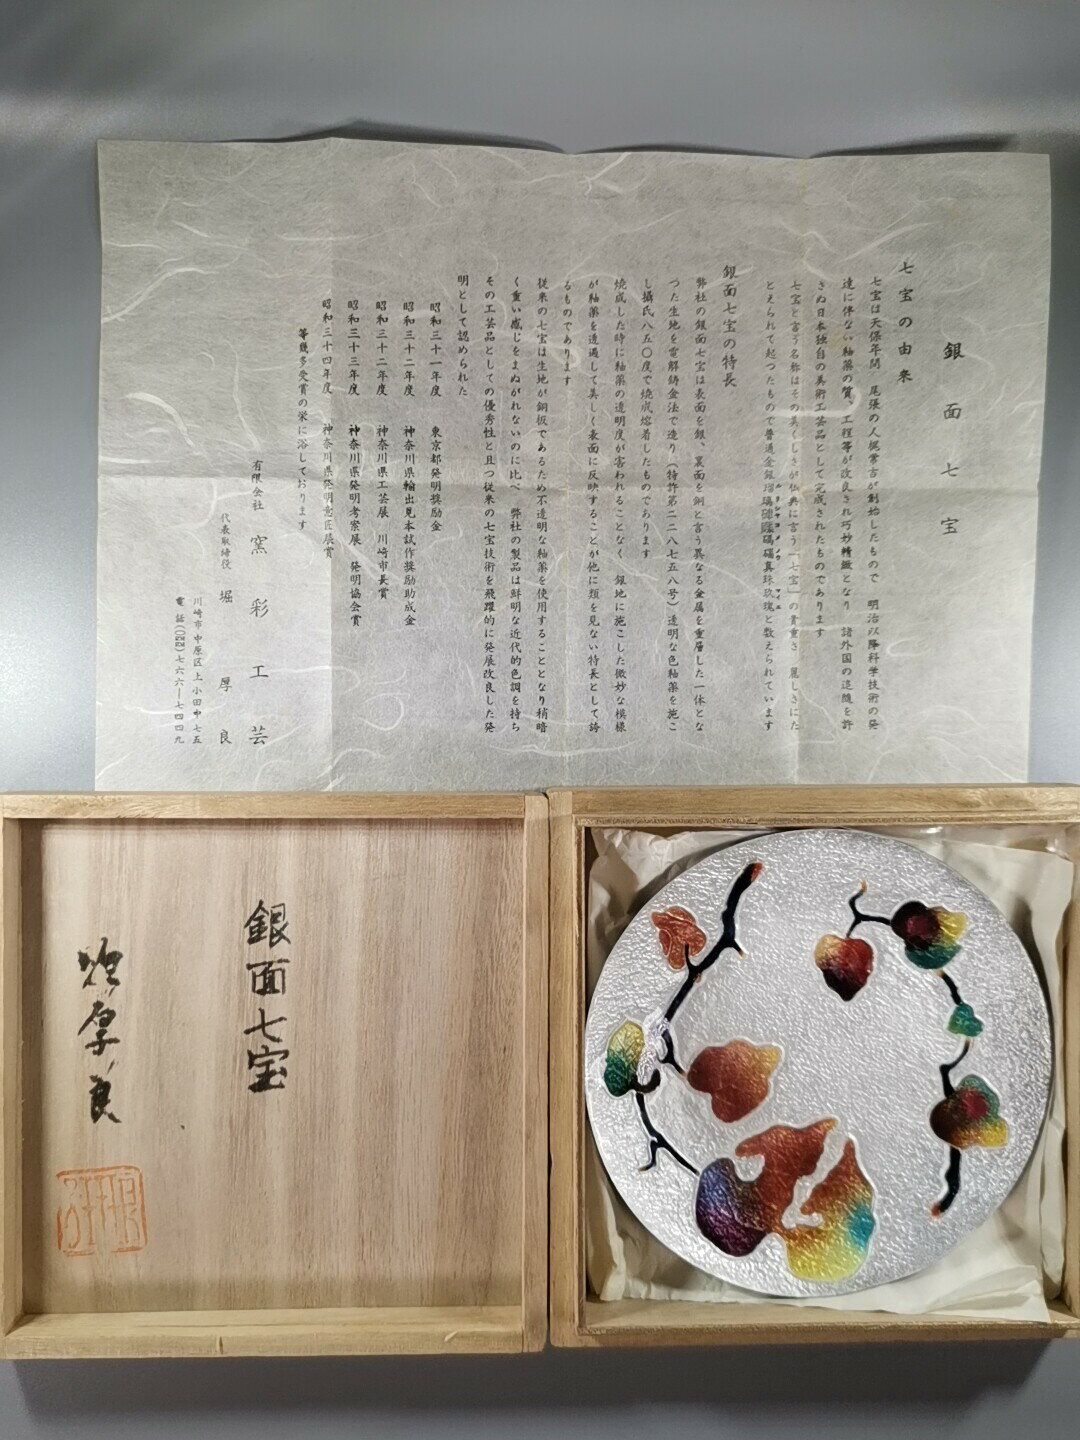 銀面七宝
七宝の由来
七宝は天保年間　尾張の人梶常吉が創始したもので　明治以降科学技術の発
達に伴ない釉薬の質、工程等が改良され巧妙精緻となり　諸外国の追随を許
さぬ日本独自の美術工芸品として完成されたものであります
七宝と言う名称はその美くしさが仏典に言う「七宝」の貴重さ　麗しさにた
とえられて起つたもので普通金銀瑠璃硨磲瑪瑙真珠玫瑰と数えられています
銀面七宝の特長
弊社の銀面七宝は表面を銀、裏面を銅と言う異なる金属を重層した一体とな
つた生地を電解鋳金法で造り（特許第二二八七五八号）透明な色釉薬を施こ
し摂氏八五〇度で焼成熔着したものであります
焼成した時に釉薬の透明度が害われることなく　銀地に施こした微妙な模様
が釉薬を透過して美しく表面に反映することが他に類を見ない特長として誇
るものであります
従来の七宝は生地が銅板であるため不透明な釉薬を使用することとなり稍暗
く重い感じをまぬがれないのに比べ　弊社の製品は鮮明な近代的色調を持ち
その工芸品としての優秀性と且つ従来の七宝技術を飛躍的に発展改良した発
明として認められた
昭和三十一年度　東京都発明奨励金
昭和三十二年度　神奈川県輸出見本試作奨励助成金
昭和三十二年度　神奈川県工芸展　川崎市長賞
昭和三十三年度　神奈川県発明考案展　発明協会賞
昭和三十四年度　神奈川県発明意匠展賞
等幾多受賞の栄に浴しております
有限会社　窯彩工芸
代表取締役　堀厚良
川崎市中原区上小田中七五
電話(〇四四)七六六―七四四九
銀面七宝
厚良